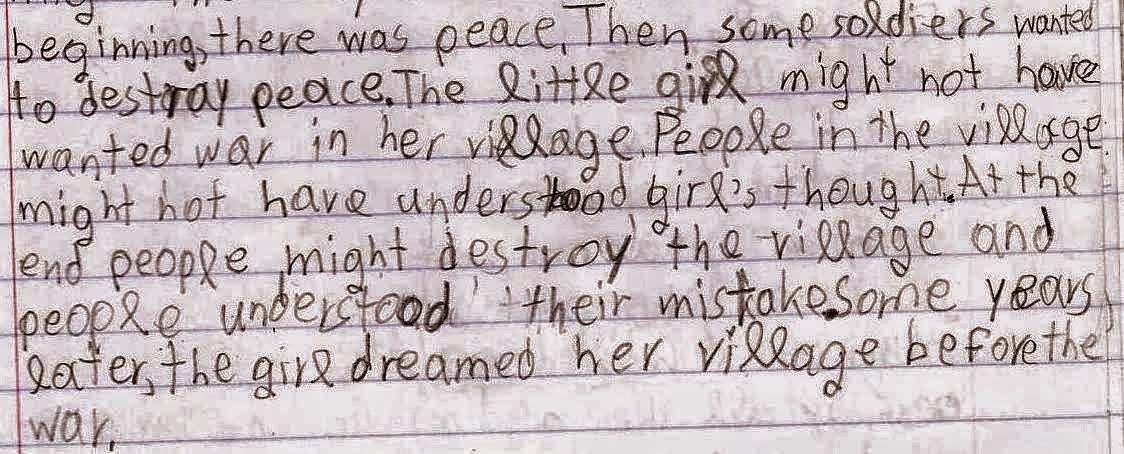 beginning, there was peace. Then some soldiers wanted
to destray peace. The little girl might not have
wanted war in her village. People in the village
might not have understood girl's thought. At the
end people might destroy the village and
people understood their mistake. some years
later, the girl dreamed her village before the
war.